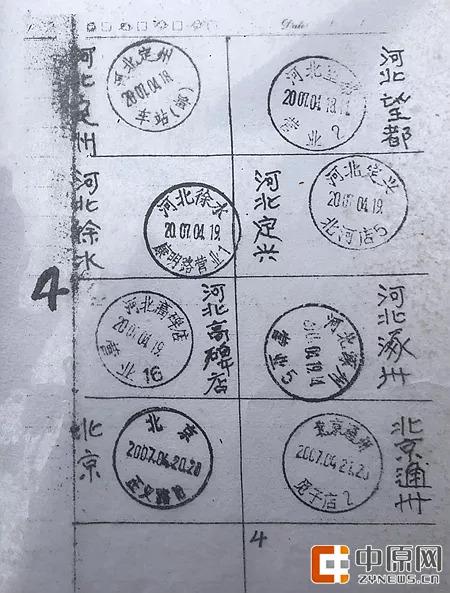 Date
河北定州
河北定州
2007.04.19.
(营)
车站
河北望都
2007.04.19.
营业
2
河北望都
河北徐水
河北徐水
2007.04.19.
康明路营业1
河北定兴
河北定兴
2007.04.19.
北河店5
4
河北高碑店
2007.04.19.
营业
16
河北高碑店
营业5
河北涿州
北京
北京
2007.04.20.20
正义路
北京通州
2
北京通州
4
中原网
ZYNEWS.CN